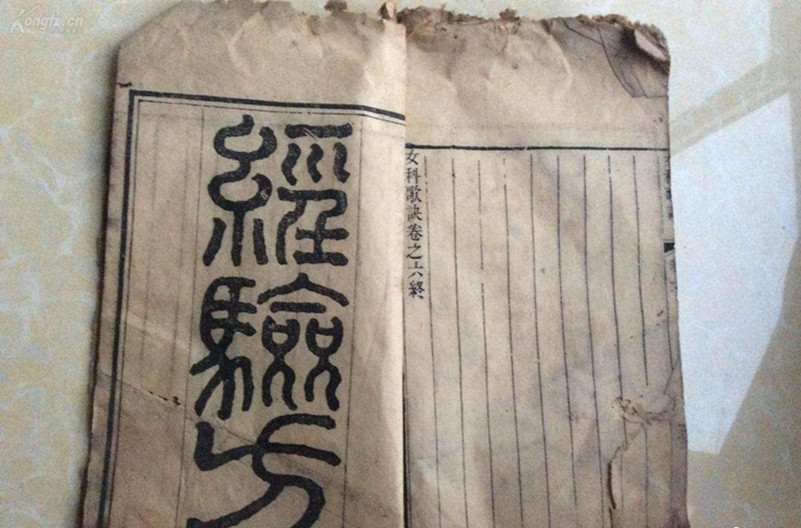 Kongfz.cn
女科歌訣卷之六終
經驗方